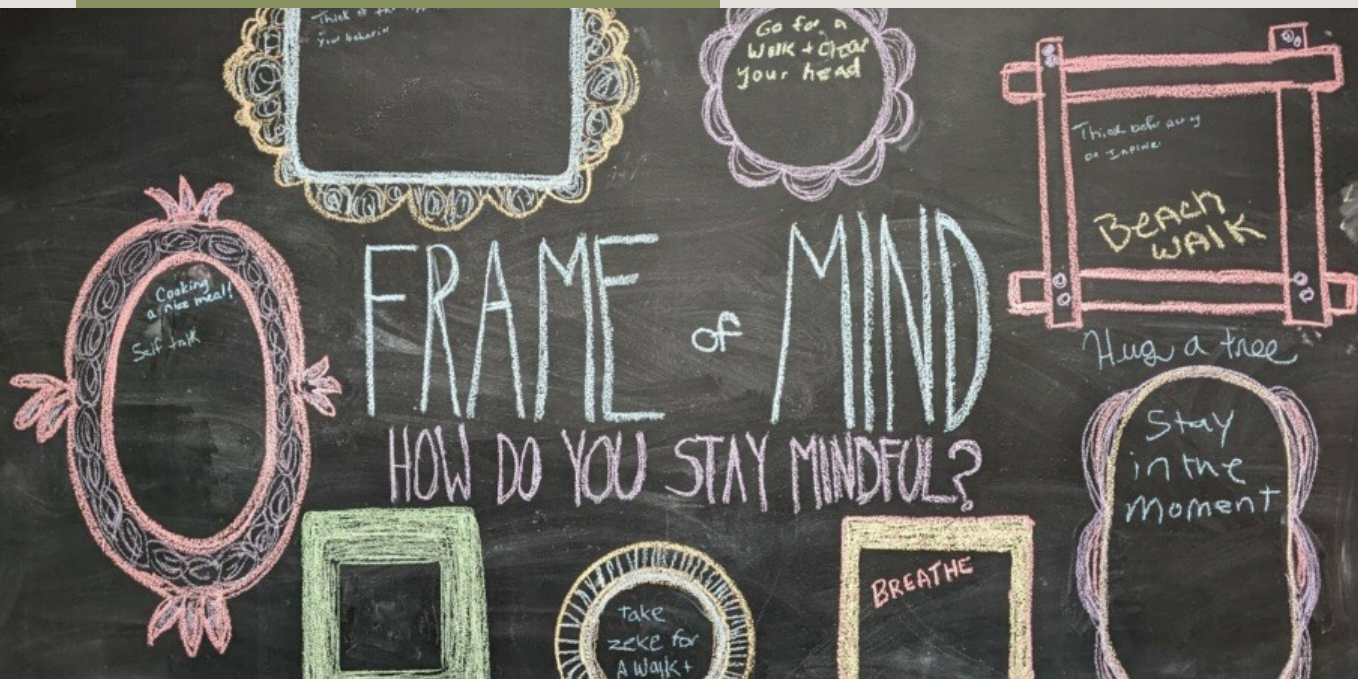 Think of the
your behavior
Go for a
Walk + Clear
your head
Think before
on
BEACH
WALK
Cooking
a nice meal!
Self talk
FRAME of MIND
HOW DO YOU STAY MINDFUL?
Hug a tree
Stay
in the
Moment
BREATHE
take
zeke for
A Walk +